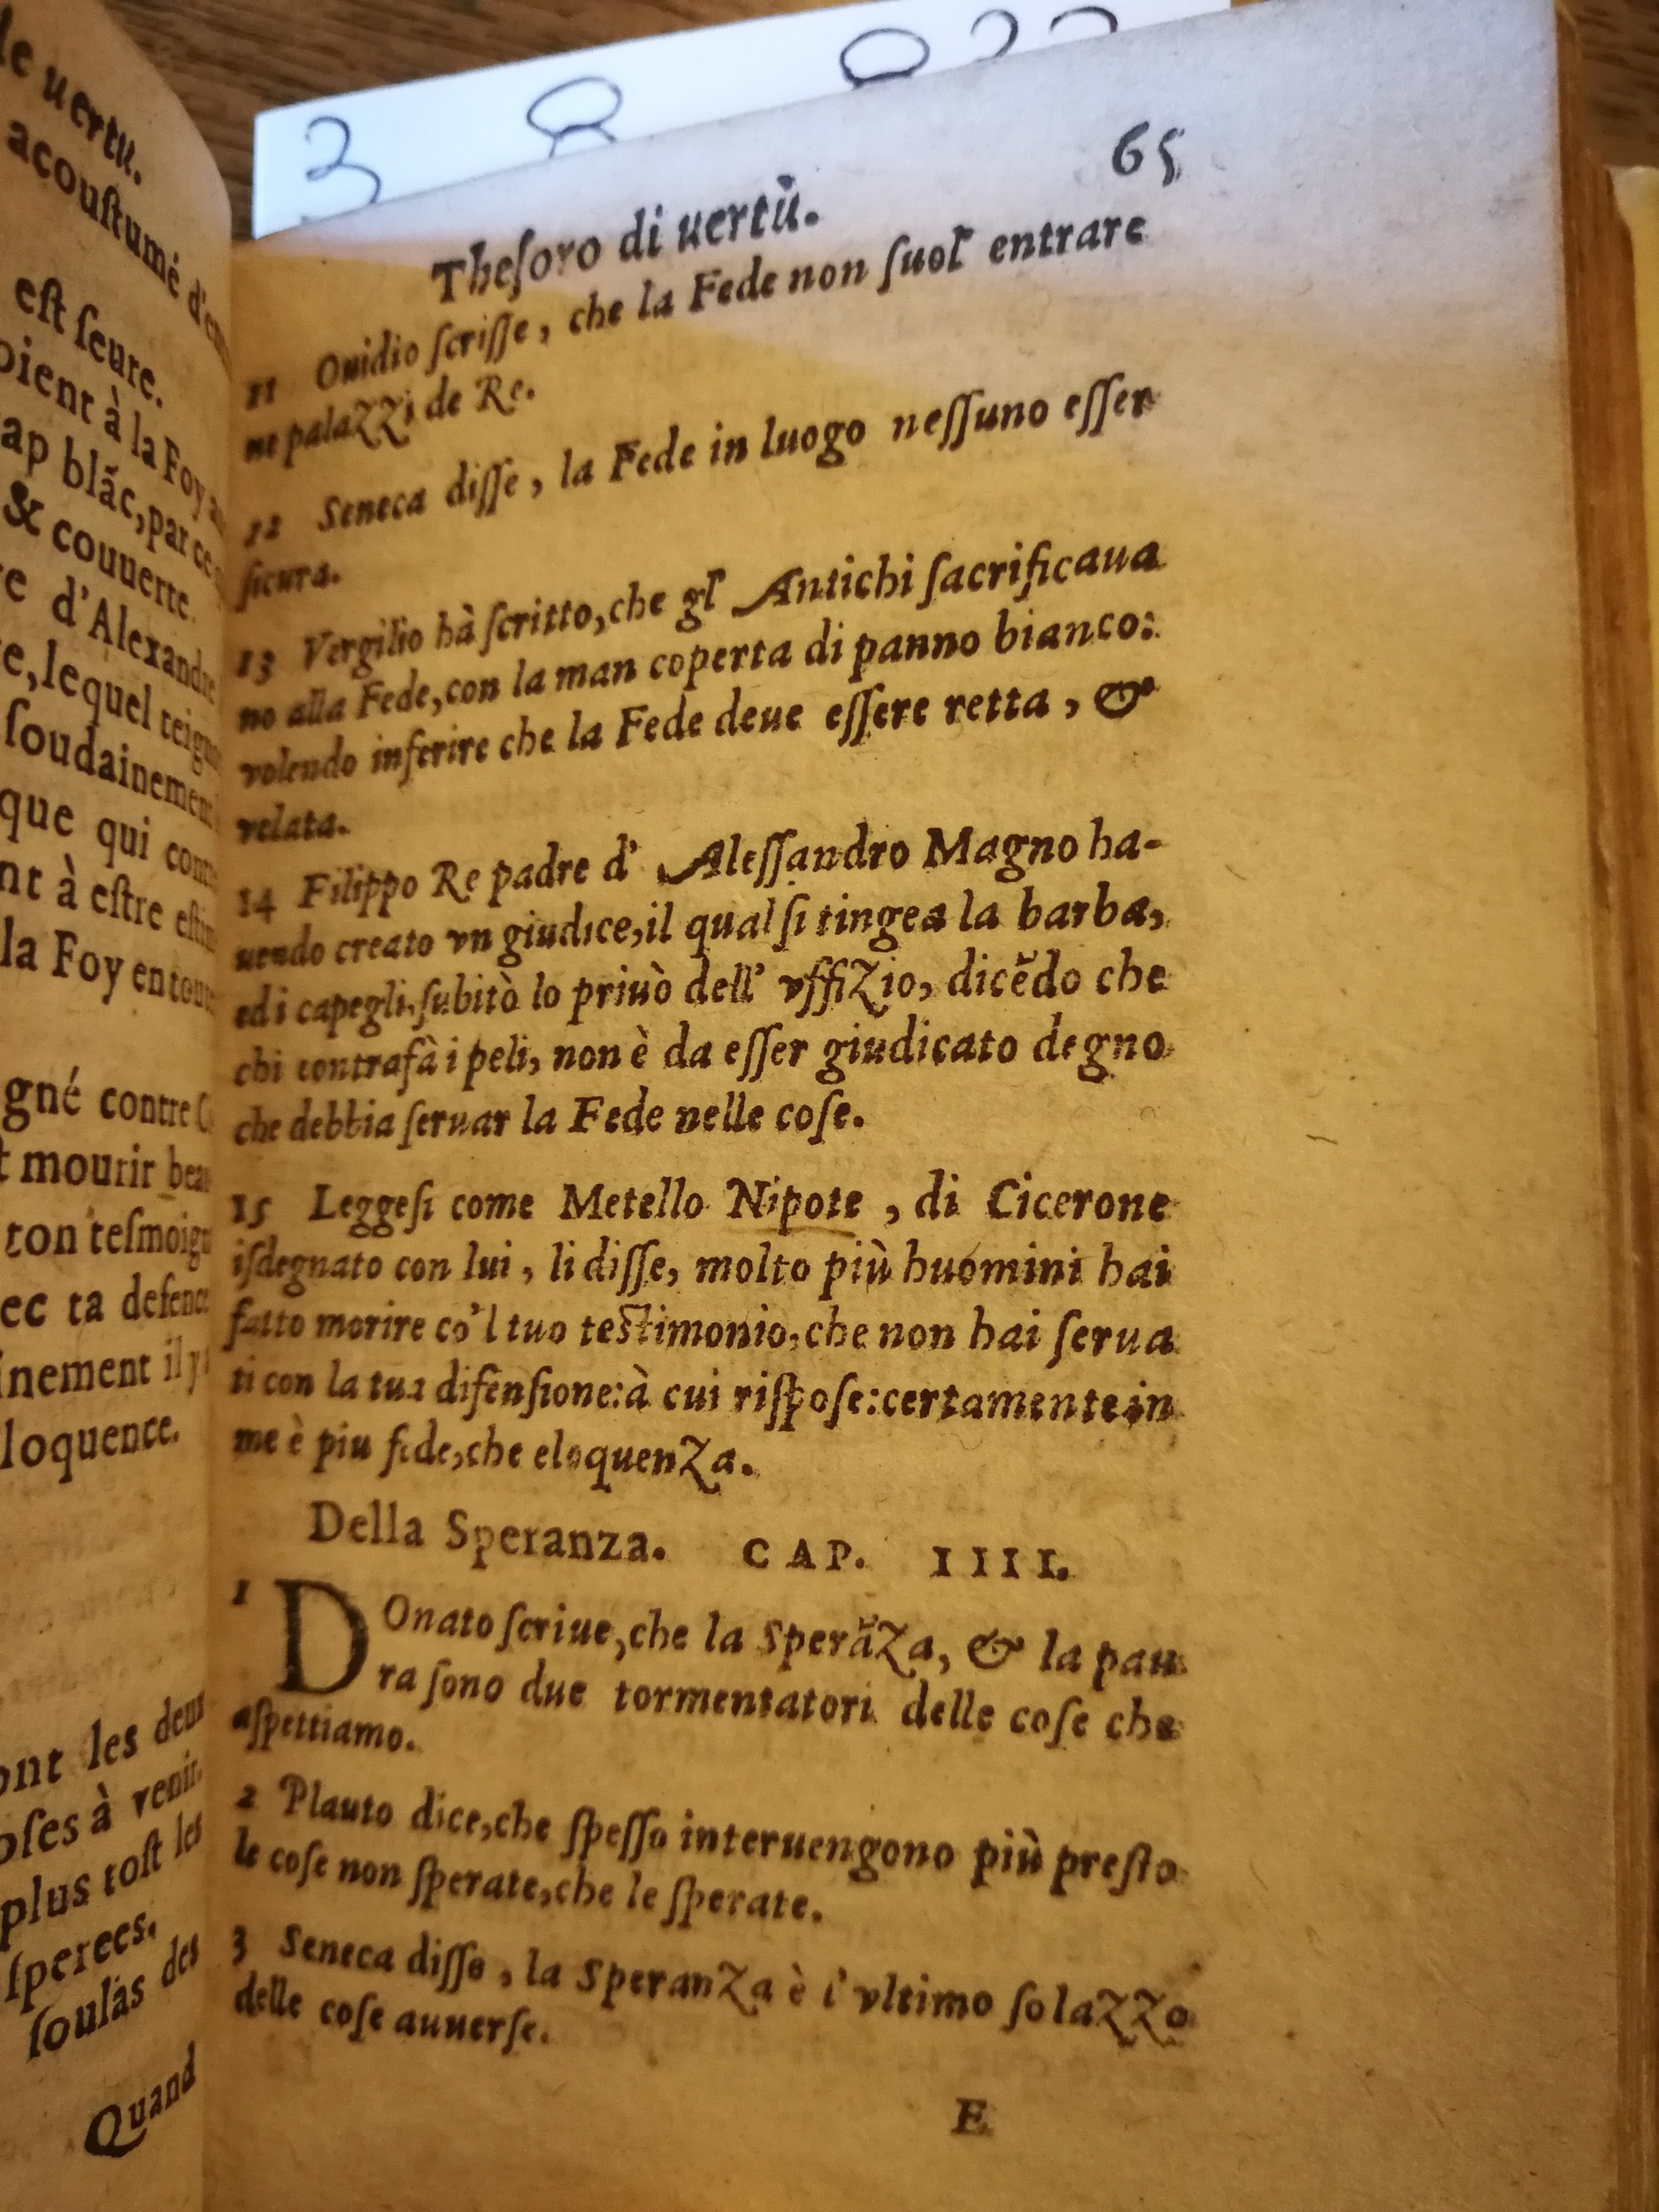 le uertu.
acouſtumé d'en
eſt ſeure.
oient à la Foy au
ap blãc, par ce
& couuerte.
re d'Alexandre
e, lequel teign
ſoudainement
que qui cont
nt à eſtre eſtim
la Foy en toute
gné contre C
t mourir beau
ton teſmoign
ec ta defence
inement il y
loquence.
ont les deux
oſes à venir.
plus toſt les
ſperees.
ſoulas des
Quand
65
Theſoro di uertù.
11 Ouidio ſcriſſe, che la Fede non ſuol' entrare
ne palazzi de Re.
12 Seneca diſſe, la Fede in luogo neſſuno eſſer
ſicura.
13 Vergilio hà ſcritto, che gl' Antichi ſacrificaua
no alla Fede, con la man coperta di panno bianco:
volendo inferire che la Fede deue eſſere retta, &
velata.
14 Filippo Re padre d' Aleſſandro Magno ha-
uendo creato vn giudice, il qual ſi tingea la barba,
ed i capegli, ſubitò lo priuò dell' vffizio, dicẽdo che
chi contrafà i peli, non è da eſſer giudicato degno
che debbia ſeruar la Fede nelle coſe.
15 Leggeſi come Metello Nipote, di Cicerone
iſdegnato con lui, li diſſe, molto più huomini hai
fatto morire co'l tuo teſtimonio, che non hai ſerua
ti con la tua difenſione: à cui riſpoſe: certamente in
me è piu fede, che eloquenza.
Della Speranza. CAP. IIII.
1 DOnato ſcriue, che la Sperãza, & la pau
ra ſono due tormentatori delle coſe che
aſpettiamo.
2 Plauto dice, che ſpeſſo interuengono più preſto
le coſe non ſperate, che le ſperate.
3 Seneca diſſe, la Speranza è l'vltimo ſolazzo
delle coſe auuerſe.
E